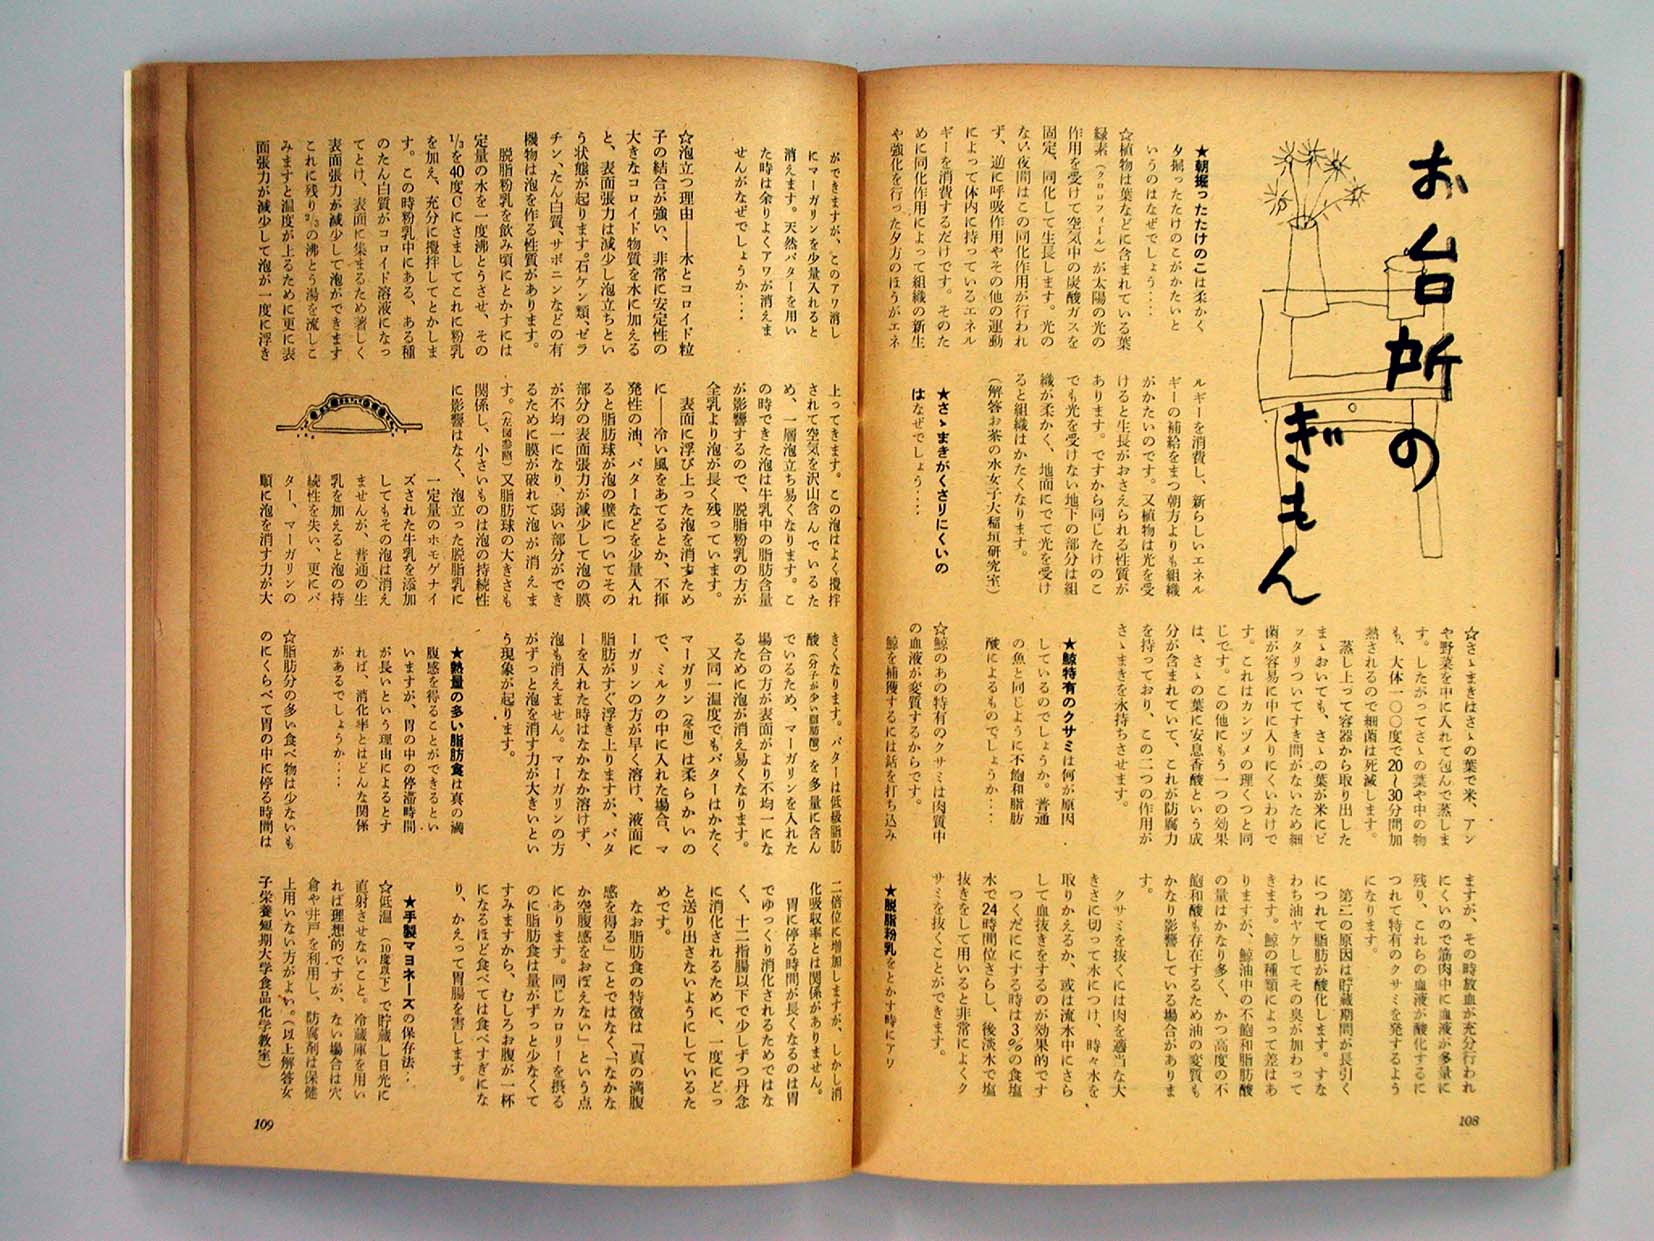 お台所の
ぎもん
★朝掘ったたけのこは柔かく
夕掘ったたけのこがかたいと
いうのはなぜでしょう‥‥
☆植物は葉などに含まれている葉
緑素（クロロフィール）が太陽の光の
作用を受けて空気中の炭酸ガスを
固定、同化して生長します。光の
ない夜間はこの同化作用が行われ
ず、逆に呼吸作用やその他の運動
によって体内に持っているエネル
ギーを消費するだけです。そのた
めに同化作用によって組織の新生
や強化を行った夕方のほうがエネ
ルギーを消費し、新らしいエネル
ギーの補給をまつ朝方よりも組織
がかたいのです。又植物は光を受
けると生長がおさえられる性質が
あります。ですから同じたけのこ
でも光を受けない地下の部分は組
織が柔かく、地面にでて光を受け
ると組織はかたくなります。
（解答お茶の水女子大稲垣研究室）
★さゝまきがくさりにくいの
はなぜでしょう‥‥
☆さゝまきはさゝの葉で米、アン
や野菜を中に入れて包んで蒸しま
す。したがってさゝの葉や中の物
も、大体一〇〇度で20〜30分間加
熱されるので細菌は死滅します。
蒸し上って容器から取り出した
まゝおいても、さゝの葉が米にピ
ッタリついてすき間がないため細
菌が容易に中に入りにくいわけで
す。これはカンヅメの理くつと同
じです。この他にもう一つの効果
は、さゝの葉に安息香酸という成
分が含まれていて、これが防腐力
を持っており、この二つの作用が
さゝまきを永持ちさせます。
★鯨特有のクサミは何が原因
しているのでしょうか。普通
の魚と同じように不飽和脂肪
酸によるものでしょうか‥‥
☆鯨のあの特有のクサミは肉質中
の血液が変質するからです。
鯨を捕獲するには銛を打ち込み
ますが、その時放血が充分行われ
にくいので筋肉中に血液が多量に
残り、これらの血液が酸化するに
つれて特有のクサミを発するよう
になります。
第二の原因は貯蔵期間が長引く
につれて脂肪が酸化します。すな
わち油ヤケしてその臭が加わって
きます。鯨の種類によって差はあ
りますが、鯨油中の不飽和脂肪酸
の量はかなり多く、かつ高度の不
飽和酸も存在するため油の変質も
かなり影響している場合がありま
す。
クサミを抜くには肉を適当な大
きさに切って水につけ、時々水を
取りかえるか、或は流水中にさら
して血抜きをするのが効果的です
つくだにする時は3％の食塩
水で24時間位さらし、後淡水で塩
抜きをして用いると非常によくク
サミを抜くことができます。
★脱脂粉乳をとかす時にアワ
108
ができますが、このアワ消し
にマーガリンを少量入れると
消えます。天然バターを用い
た時は余りよくアワが消えま
せんがなぜでしょうか‥‥
☆泡立つ理由――水とコロイド粒
子の結合が強い、非常に安定性の
大きなコロイド物質を水に加える
と、表面張力は減少し泡立ちとい
う状態が起ります。石ケン類、ゼラ
チン、たん白質、サポニンなどの有
機物は泡を作る性質があります。
脱脂粉乳を飲み頃にとかすには
定量の水を一度沸とうさせ、その
1/3を40度Cにさましてこれに粉乳
を加え、充分に攪拌してとかしま
す。この時粉乳中にある、ある種
のたん白質がコロイド溶液になっ
てとけ、表面に集まるため著しく
表面張力が減少して泡ができます
これに残り2/3の沸とう湯を流しこ
みますと温度が上るために更に表
面張力が減少して泡が一度に浮き
上ってきます。この泡はよく攪拌
されて空気を沢山含んでいるた
め、一層泡立ち易くなります。こ
の時できた泡は牛乳中の脂肪含量
が影響するので、脱脂粉乳の方が
全乳より泡が長く残っています。
表面に浮び上った泡を消すため
に――冷い風をあてるとか、不揮
発性の油、バターなどを少量入れ
ると脂肪球が泡の壁についてその
部分の表面張力が減少して泡の膜
が不均一になり、弱い部分ができ
るために膜が破れて泡が消えま
す。（左図参照）又脂肪球の大きさも
関係し、小さいものは泡の持続性
に影響はなく、泡立った脱脂乳に
一定量のホモゲナイ
ズされた牛乳を添加
してもその泡は消え
ませんが、普通の生
乳を加えると泡の持
続性を失い、更にバ
ター、マーガリンの
順に泡を消す力が大
きくなります。バターは低級脂肪
酸（分子が少い脂肪酸）を多量に含ん
でいるため、マーガリンを入れた
場合の方が表面がより不均一にな
るために泡が消え易くなります。
又同一温度でもバターはかたく
マーガリン（冬用）は柔らかいの
で、ミルクの中に入れた場合、マ
ーガリンの方が早く溶け、液面に
脂肪がすぐ浮き上りますが、バタ
ーを入れた時はなかなか溶けず、
泡も消えません。マーガリンの方
がずっと泡を消す力が大きいとい
う現象が起ります。
★熱量の多い脂肪食は真の満
腹感を得ることができるとい
いますが、胃の中の停滞時間
が長いという理由によるとす
れば、消化率とはどんな関係
があるでしょうか‥‥
☆脂肪分の多い食べ物は少ないも
のにくらべて胃の中に停る時間は
二倍位に増加しますが、しかし消
化吸収率とは関係がありません。
胃に停る時間が長くなるのは胃
でゆっくり消化されるためではな
く、十二指腸以下で少しずつ丹念
に消化されるために、一度にどっ
と送り出さないようにしているた
めです。
なお脂肪食の特徴は「真の満腹
感を得る」ことではなく、「なかな
か空腹感をおぼえない」という点
にあります。同じカロリーを摂る
のに脂肪食は量がずっと少なくて
すみますから、むしろお腹が一杯
になるほど食べては食べすぎにな
り、かえって胃腸を害します。
★手製マヨネーズの保存法‥
☆低温（10度以下）で貯蔵し日光に
直射させないこと。冷蔵庫を用い
れば理想的ですが、ない場合は穴
倉や井戸を利用し、防腐剤は保健
上用いない方がよい。（以上解答女
子栄養短期大学食品化学教室）
109